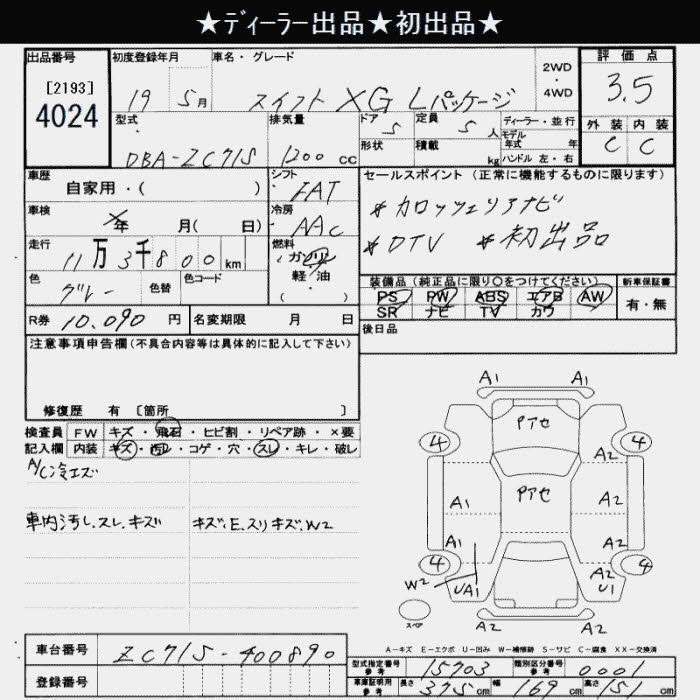 ★ディーラー出品★初出品★
出品番号 初度登録年月 車名・グレード 評価点
[2193]
4024
19 5月 スイフト XG Lパッケージ 2WD・4WD 3.5
型式 排気量 ドア 定員 ディーラー・並行 外装 内装
DBA-ZC71S 1200cc 5 5人 モデル年式 年 C C
形状 積載 kg ハンドル 左・右
車歴 シフト セールスポイント (正常に機能するものに限ります)
自家用・( ) FAT
車検 年 月(日) 冷房 AAC
*カロッツェリアナビ
*DTV *初出品
走行 11万3千800km 燃料 ガソリン・軽・油・( )
色 色替 色コード
グレー
装備品(純正品に限り○をつけてください) 新車保証書
PS PW ABS エアB AW 有・無
SR ナビ TV カワ
R券 10.090円 名変期限 月 日 後日品
注意事項申告欄(不具合内容等は具体的に記入して下さい)
修復歴 有 〔箇所 〕
検査員 FW キズ・飛石・ヒビ割・リペア跡・×要
記入欄 内装 キズ・汚レ・コゲ・穴・スレ・キレ・破レ
A/C冷エズ
車内汚レ.スレ.キズ キズ.E.スリキズ.W2
A1 A1
Pアセ
4 4
A2
Pアセ
A1 A2
A1 A2
4 A2 4
W2 UA1 U1
スペア
A2 A2
A-キズ E-エクボ U-凹み W-補修跡 S-サビ C-腐食 XX-交換済
車台番号 ZC71S-400890
登録番号
型式指定番号 参考 15703 類別区分番号 参考 0001
車庫証明用 参考 長さ 375cm 幅 169cm 高さ 151cm